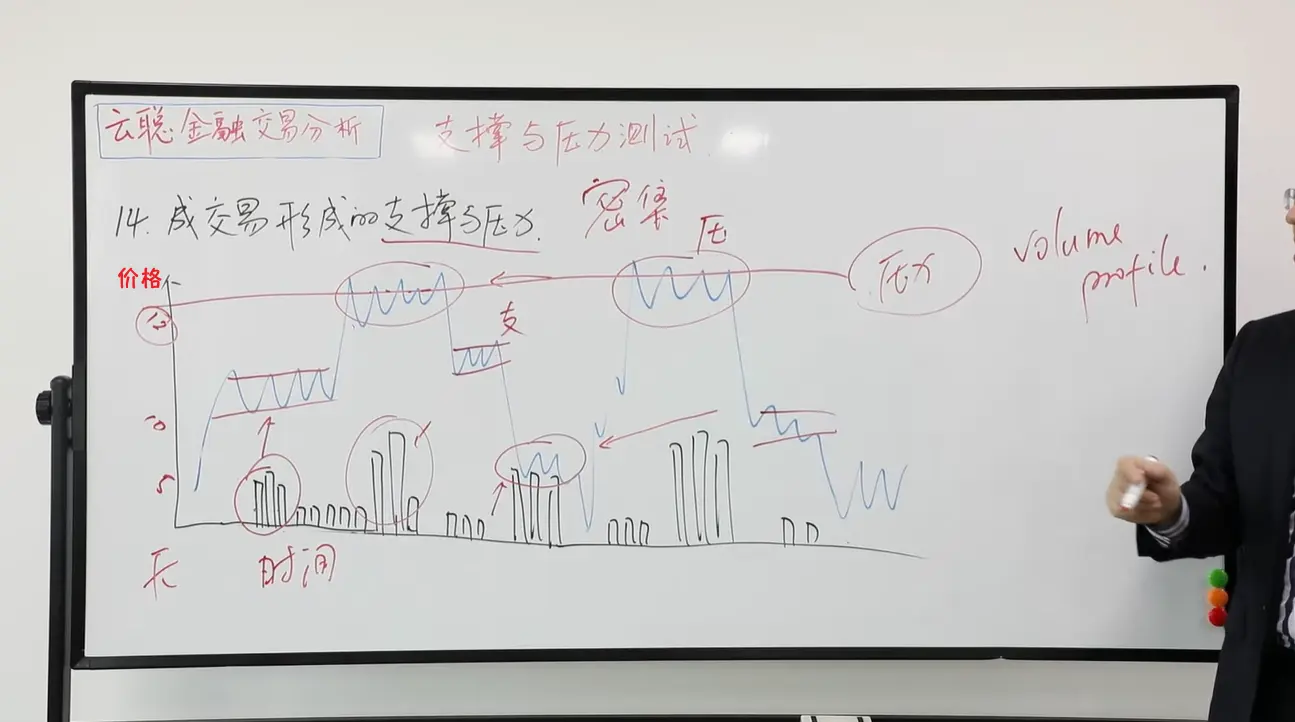 云聪金融交易分析
支撑与压力测试
14. 成交易形成的支撑与压力.
密集
压
价格
压力
volume
profile.
支
10
5
时间